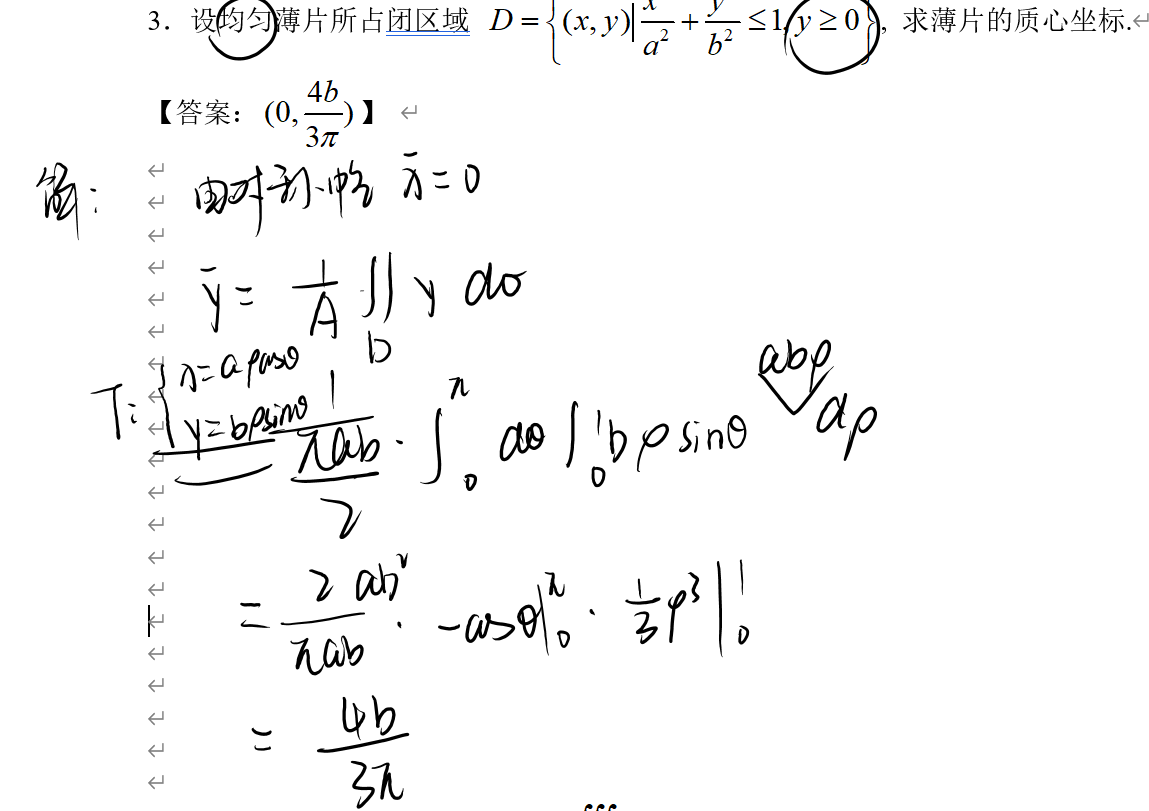 3．设均匀薄片所占闭区域 D={(x, y)| x/a² + y/b² ≤1, y≥0}, 求薄片的质心坐标.
【答案： (0, 4b/3π) 】
解： 由对称性 x̄ = 0
ȳ = 1/A ∬_D y dσ
T: { x = aρcosθ
y = bρsinθ
1/(πab/2) · ∫_0^π dθ ∫_0^1 bρ sinθ abρ dρ
= 2ab²/πab · -cosθ|_0^π · 1/3 ρ³ |_0^1
= 4b/3π